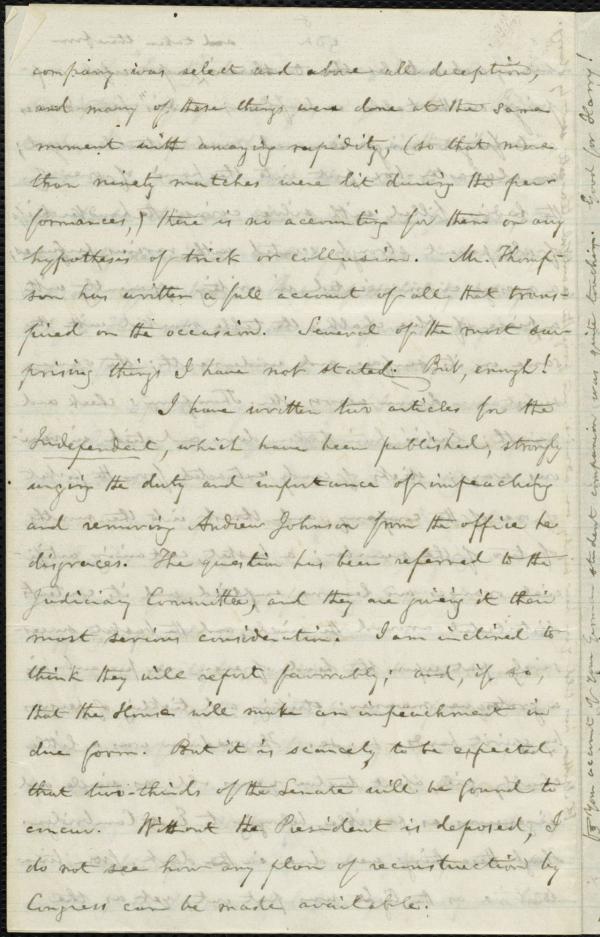 company was select and above all deception,
and many of these things were done at the same
moment with amazing rapidity, (so that more
than ninety matches were lit during the per-
formances,) there is no accounting for them on any
hypothesis of trick or collusion. Mr. Thomp-
son has written a full account of all that trans-
pired on the occasion. Several of the most sur-
prising things I have not stated. But, enough!
I have written two articles for the
Independent, which have been published, strongly
urging the duty and importance of impeaching
and removing Andrew Johnson from the office he
disgraces. The question has been referred to the
Judiciary Committee, and they are giving it their
most serious consideration. I am inclined to
think they will report favorably; and, if so,
that the House will make an impeachment in
due form. But it is scarcely to be expected
that two-thirds of the Senate will be found to
concur. Without the President is deposed, I
do not see how any plan of reconstruction by
Congress can be made available.
Your account of your German student companion was quite touching. Good for Harry!